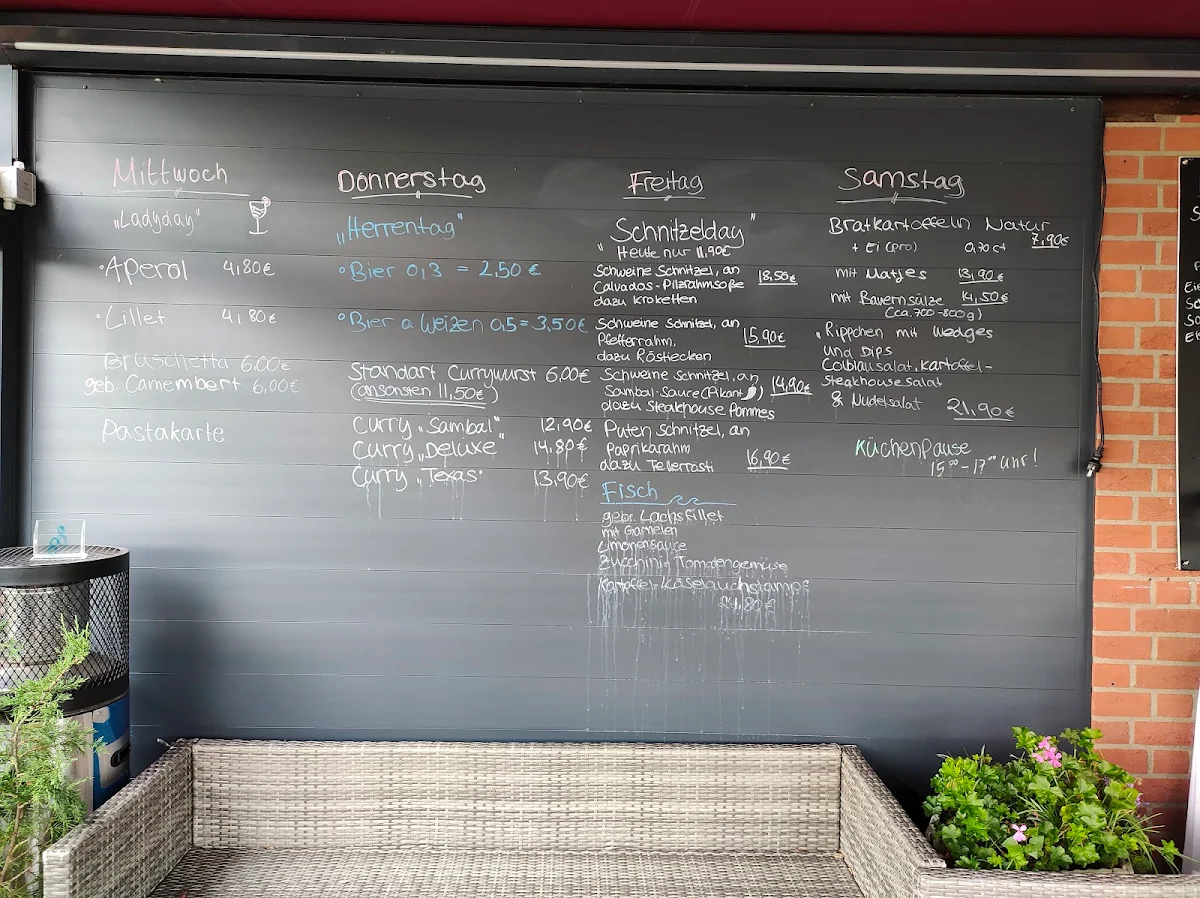 Mittwoch
„Ladyday"
•Aperol 4,80€
•Lillet 4,80€
Bruschetta 6.00€
geb. Camembert 6,00€
Pastakarte
Donnerstag
„Herrentag"
•Bier 0,3 = 2,50 €
•Bier a Weizen 0,5 = 3,50€
Standart Currywurst 6,00€
(ansonsten 11,50€)
Curry „Sambal" 12,90€
Curry „Deluxe" 14,80€
Curry „Texas" 13,90€
Freitag
„Schnitzelday"
Heute nur 11,90€
Schweine Schnitzel, an
Calvados-Pilzrahmsoße 18,50€
dazu Kroketten
Schweine Schnitzel, an
Pfefferrahm, 15,90€
dazu Röstiecken
Schweine Schnitzel, an
Sambal-Sauce (Pikant) 14,90€
dazu Steakhouse Pommes
Puten Schnitzel, an
Paprikarahm
dazu Tellerrösti 16,90€
Fisch
gebr. Lachsfillet
mit Garnelen
Limonensauce
Zucchini-Tomatengemüse
Kartoffel-Käselauchstampf
Samstag
Bratkartoffeln Natur
7,90€
+ Ei (pro) 0,70ct
mit Matjes 13,90€
mit Bauernsülze 14,50€
(ca. 700-800g)
„Rippchen mit Wedges
und Dips
Colblausalat, Kartoffel-
Steakhousesalat
& Nudelsalat 21,90€
Küchenpause
15⁰⁰-17⁰⁰ Uhr!